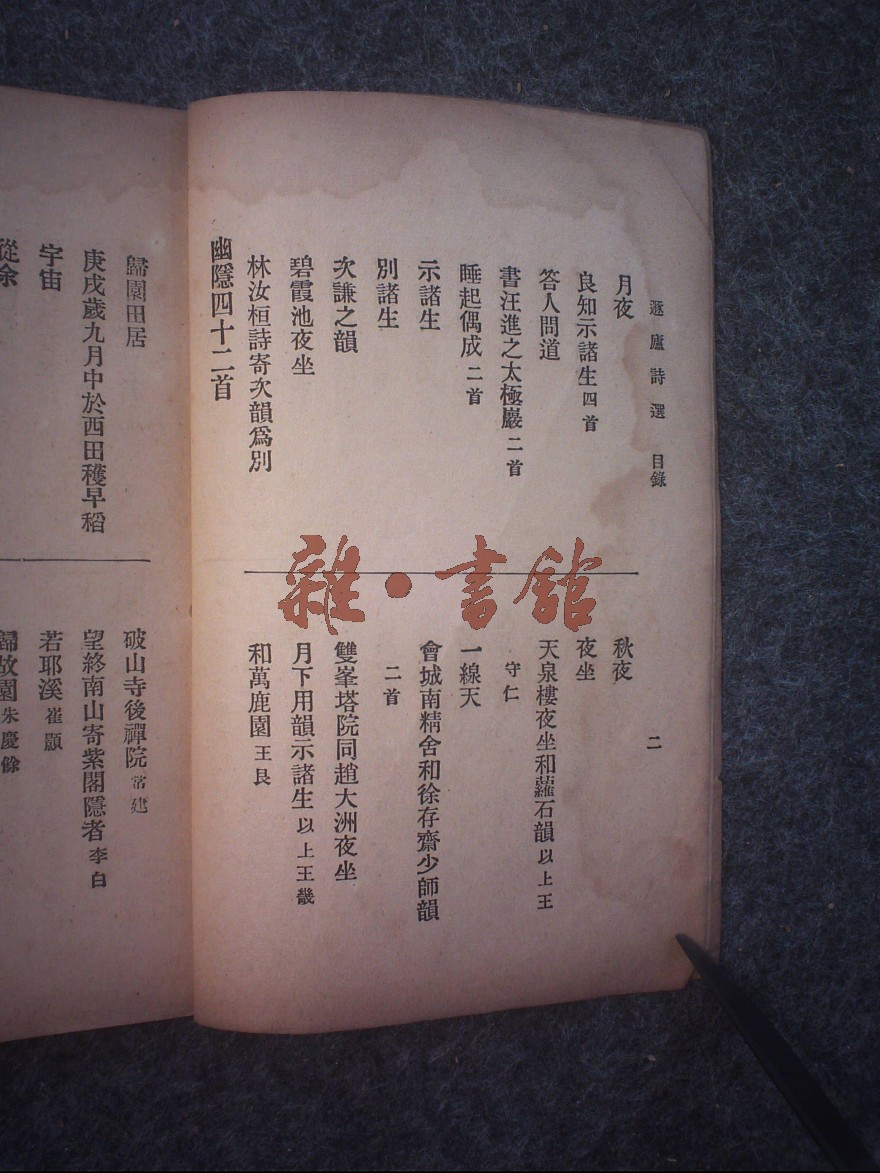 遯廬詩選 目錄 二
月夜
良知示諸生 四首
答人問道
書汪進之太極巖 二首
睡起偶成 二首
示諸生
別諸生
次謙之韻
碧霞池夜坐
林汝桓詩寄次韻爲別
幽隱四十二首
秋夜
夜坐
天泉樓夜坐和蘿石韻 以上王
守仁
一線天
會城南精舍和徐存齋少師韻
二首
雙峯塔院同趙大洲夜坐
月下用韻示諸生 以上王畿
和萬鹿園 王艮
雜·書館
歸園田居
庚戌歲九月中於西田穫早稻
宇宙
從余
破山寺後禪院 常建
望終南山寄紫閣隱者 李白
若耶溪 崔顥
歸故園 朱慶餘